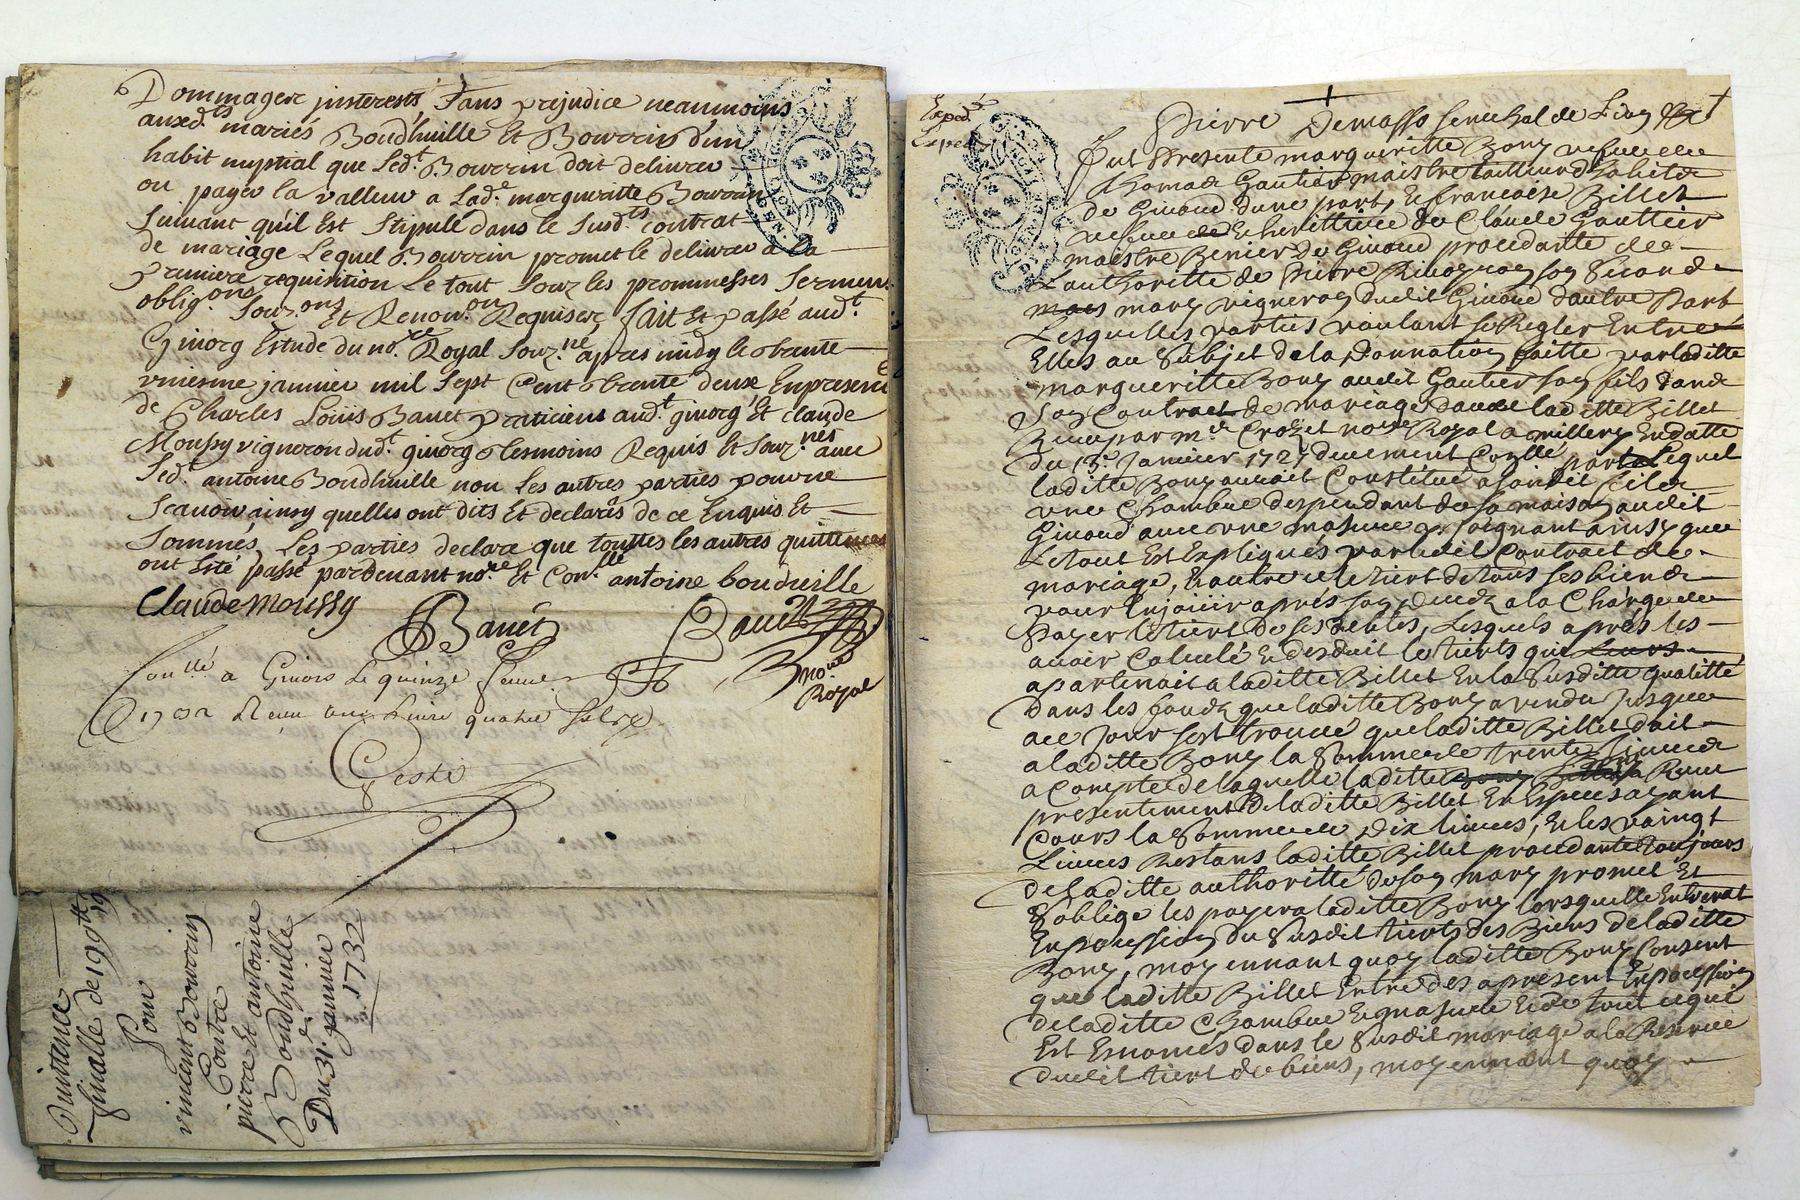 Dommages et jnterests, sans prejudice neanmoins
auxd.ts mariés Boudhuille Et Bourrin d'un
habit nuptial que Led.t Bourrin doit delivrer
ou payer la valleur a Lad.e margueritte Bourrin
suivant qu'il Est stipulé dans le susd.t contrat
de mariage Lequel Bourrin promet le delivrer a la
premiere requisition Le tout sous les prommesses sermens
oblig.ons sous.ons Et Renon.on Requises, fait Et passé aud.t
Givorg Estude du no.re Royal souz.né apres midy le trente
uniesme janvier mil sept Cent trente deux En presence
de Charles Loüis Banet praticient aud.t givorg Et claude
Moussy vigneron dud.t givorg tesmoins Requis Et souz.nés avec
led.t antoine Boudhuille non Les autres parties pour ne
scavoir ainsy quelles ont dits Et declarés de ce Enquis Et
sommés, Les parties declare que touttes les autres quittences
ont Esté passé pardevant no.re Et Con.lle antoine boudeille
Claude Moussy
Banet
no.re
Royal
Con.llé a Givors Le quinze
quatre
Geste
Quittence
finalle de 199tt 19
Pour
vincent Bourrin
Contre
pierre Et antoine
Boudhuille
Du 31.e janvier
1732
Exped.
Exped.
Pierre Demasso senechal de Lion
Fut Presente margueritte Bony vefue de
Thomas Gautier maistre tailleur d'habits
de Givord d'une part, Et francoise Billet
vefue Et herittiere de Claude Gauttier
maistre Benier de Givord procedante de
L'authoritté de Pierre son Second
mary vigneron dudit Givord d'autre Part
Lesquelles parties voulant se Regler Entre
Elles au Subjet de la Donnation faitte par laditte
margueritte Bony audit Gautier son fils dans
Son Contract de mariage avec laditte Billet
Receu par m.e Crozet no.re Royal a millery En datte
du 13.e Janvier 1727 deuement Conllé par Lequel
laditte Bony auroit Constitué a sondit fils
vne Chambre despendant de sa maison audit
Givord avec vne masure y joignant ainsy que
Le tout Est Expliqués par ledit Contrait de
mariage, Et outre ce le tiert de tous ses biens
pour En jouir aprés son decés a la Charge de
Payer le tiert de ses debtes, Lesquels aprés les
avoir Calculé Et desduit le tierts qui
apartenoit a laditte Billet En la Susditte qualitté
dans les fonds que laditte Bony a vendu Jusques
a ce Jour s'est trouvé que laditte Billet doit
a laditte Bony la Somme de trente Livres
a Compte de laquelle laditte Bony a Receu
presentement de laditte Billet En Espece ayant
Cours la Somme de dix livres, Et les vaingt
Livres Restans laditte Billet procedante toujours
de laditte authoritté de son mary promet Et
S'oblige les payer a laditte Bony lorsquelle Entrerat
En possession du Susdit tierts des Biens de laditte
Bony, moyennant quoy laditte Bony Consent
que laditte Billet Entre des apresent En possession
de laditte Chambre Et masure Et de tout ce qui
Est Enoncés dans le Susdit mariage a la Reserve
dudit tiert de biens, moyennant quoy